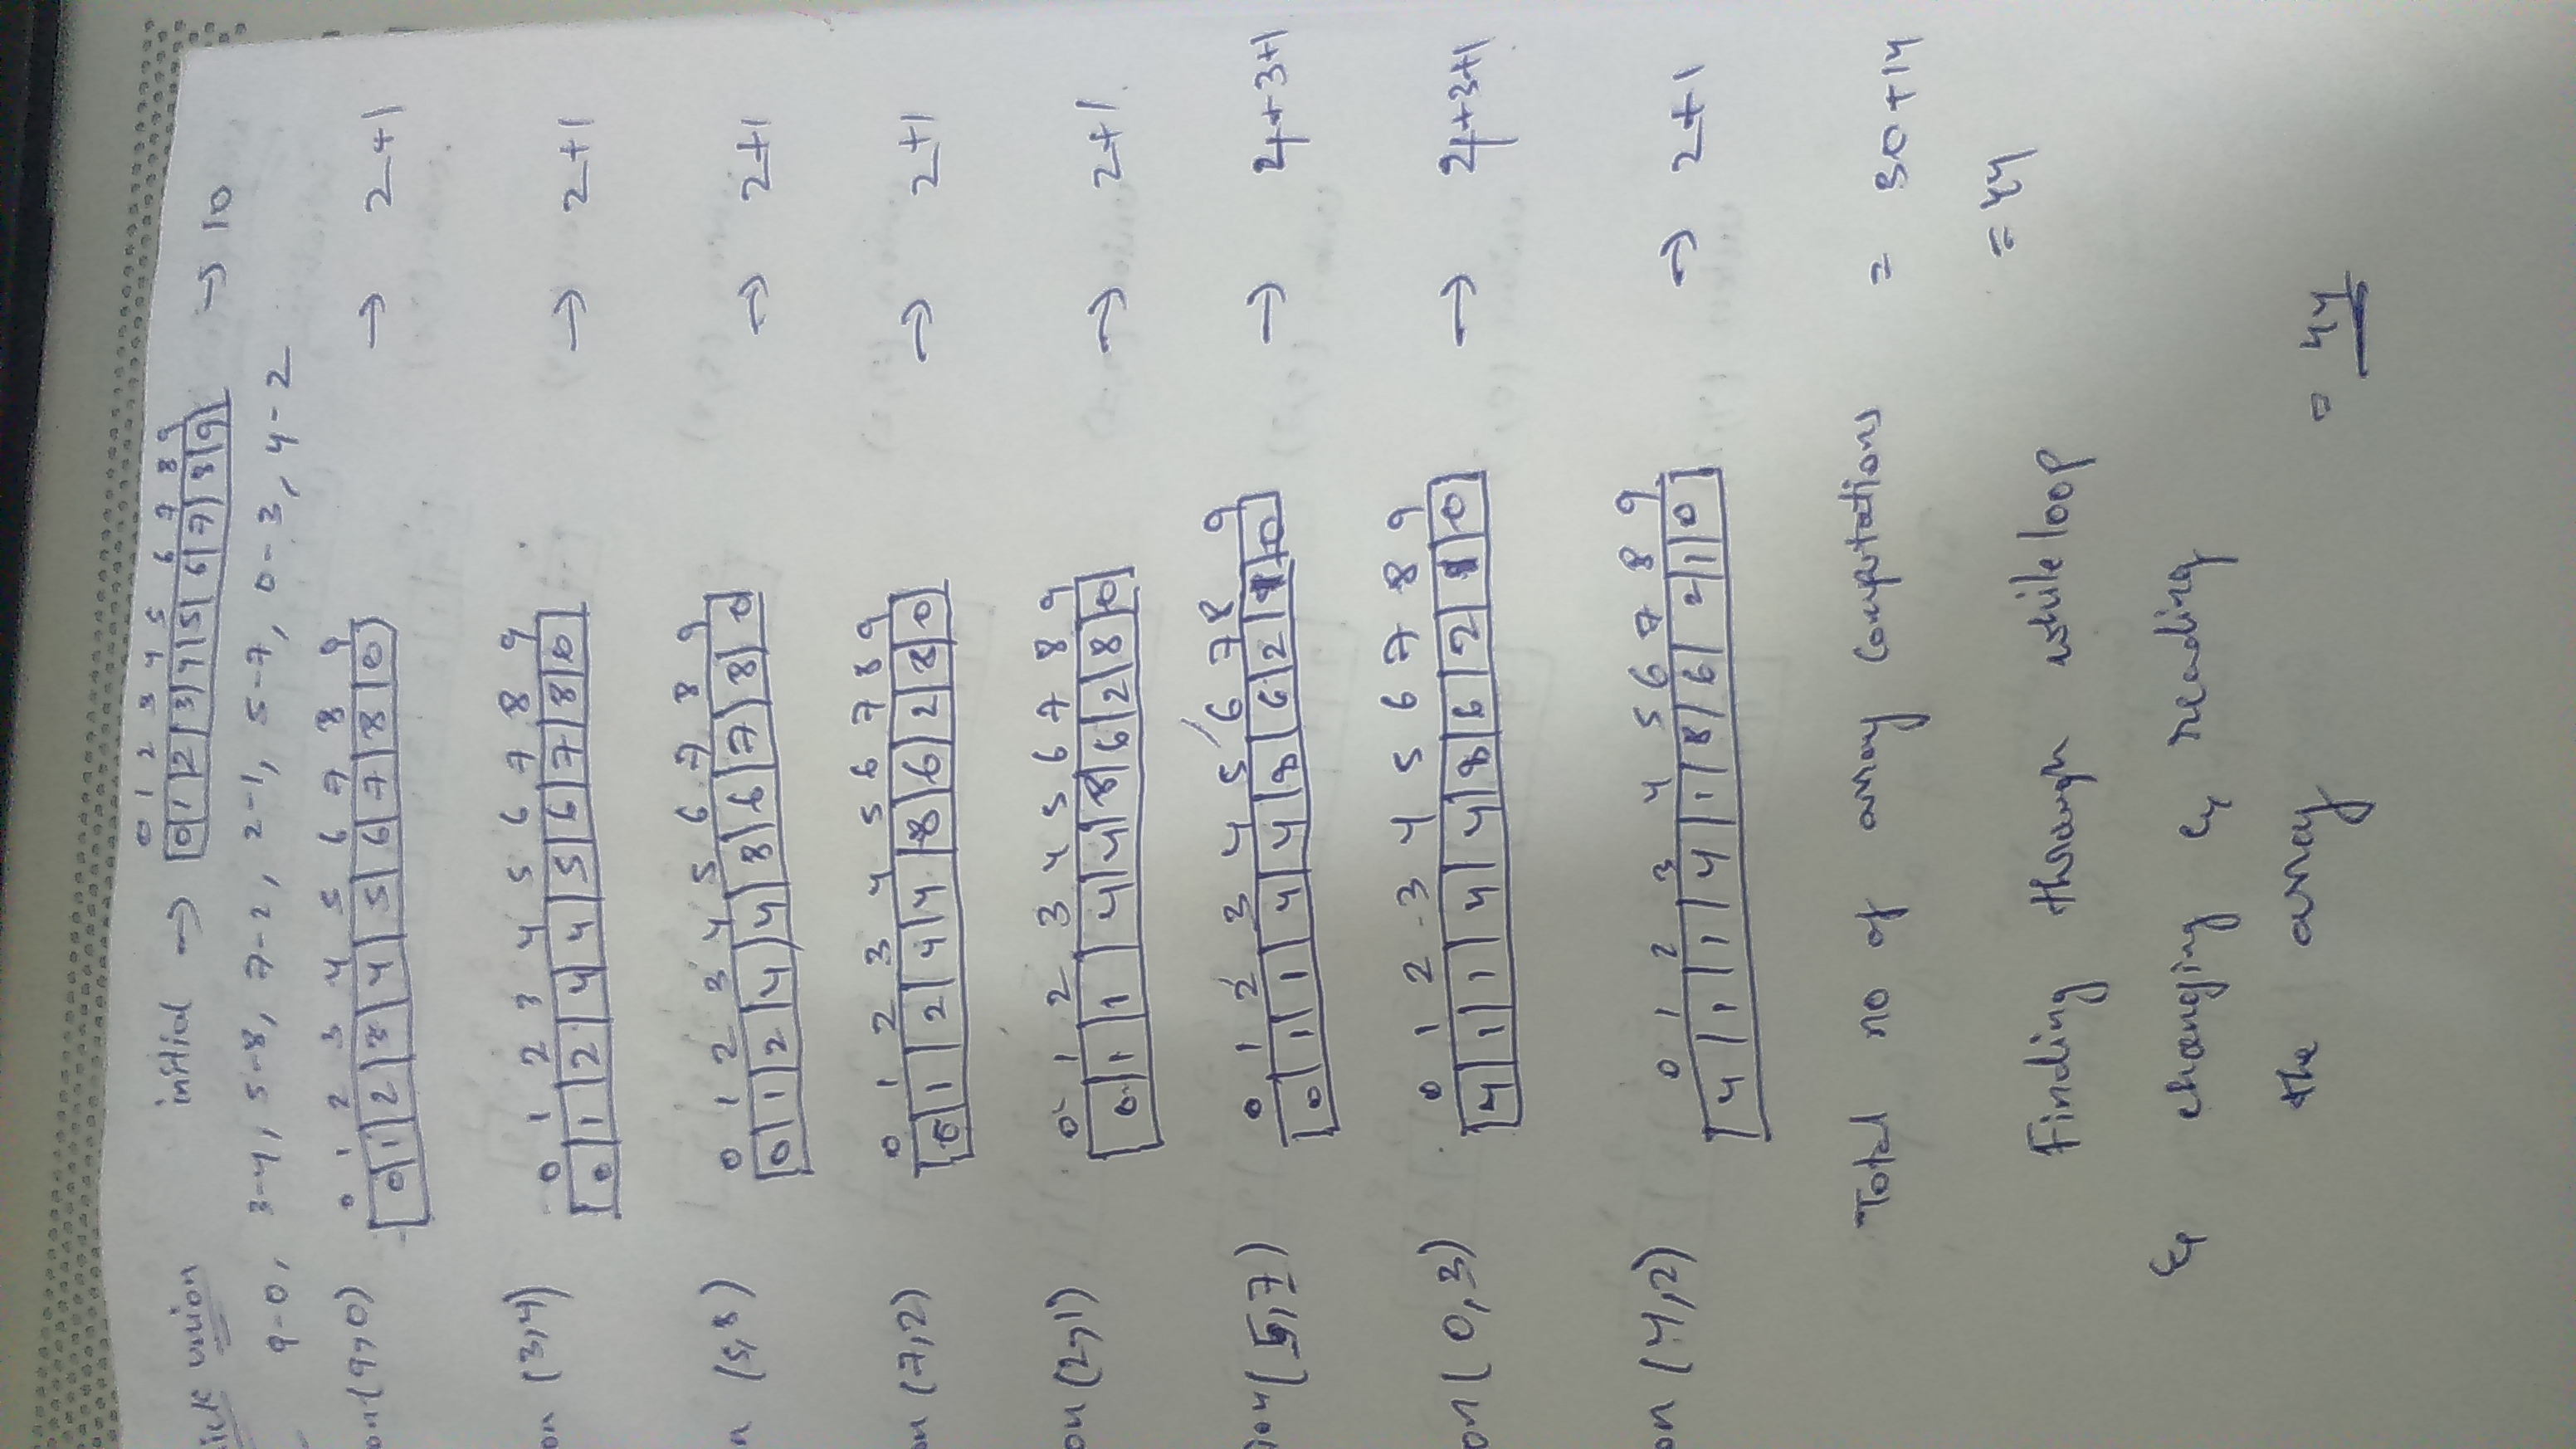 ick union initial → 0 1 2 3 4 5 6 7 8 9
0 1 2 3 4 5 6 7 8 9 → 10
9-0, 3-4, 5-8, 7-2, 2-1, 5-7, 0-3, 4-2
0 1 2 3 4 5 6 7 8 9
on (9,0) 0 1 2 3 4 5 6 7 8 0 → 2+1
0 1 2 3 4 5 6 7 8 9
on (3,4) 0 1 2 4 4 5 6 7 8 0 → 2+1
0 1 2 3 4 5 6 7 8 9
n (5,8) 0 1 2 4 4 8 6 7 8 0 → 2+1
0 1 2 3 4 5 6 7 8 9
on (7,2) 0 1 2 4 4 8 6 2 8 0 → 2+1
0 1 2 3 4 5 6 7 8 9
on (2,1) 0 1 1 4 4 8 6 2 8 0 → 2+1
0 1 2 3 4 5 6 7 8 9
ion (5,7) 0 1 1 4 4 8 6 2 1 0 → 4+3+1
0 1 2 3 4 5 6 7 8 9
on (0,3) 4 1 1 4 4 8 6 2 1 0 → 4+3+1
0 1 2 3 4 5 6 7 8 9
on (4,2) 4 1 1 4 1 8 6 2 1 0 → 2+1
Total no of array Computations = 30+14
= 44
Finding through while loop
& changing & reading
the array = 44